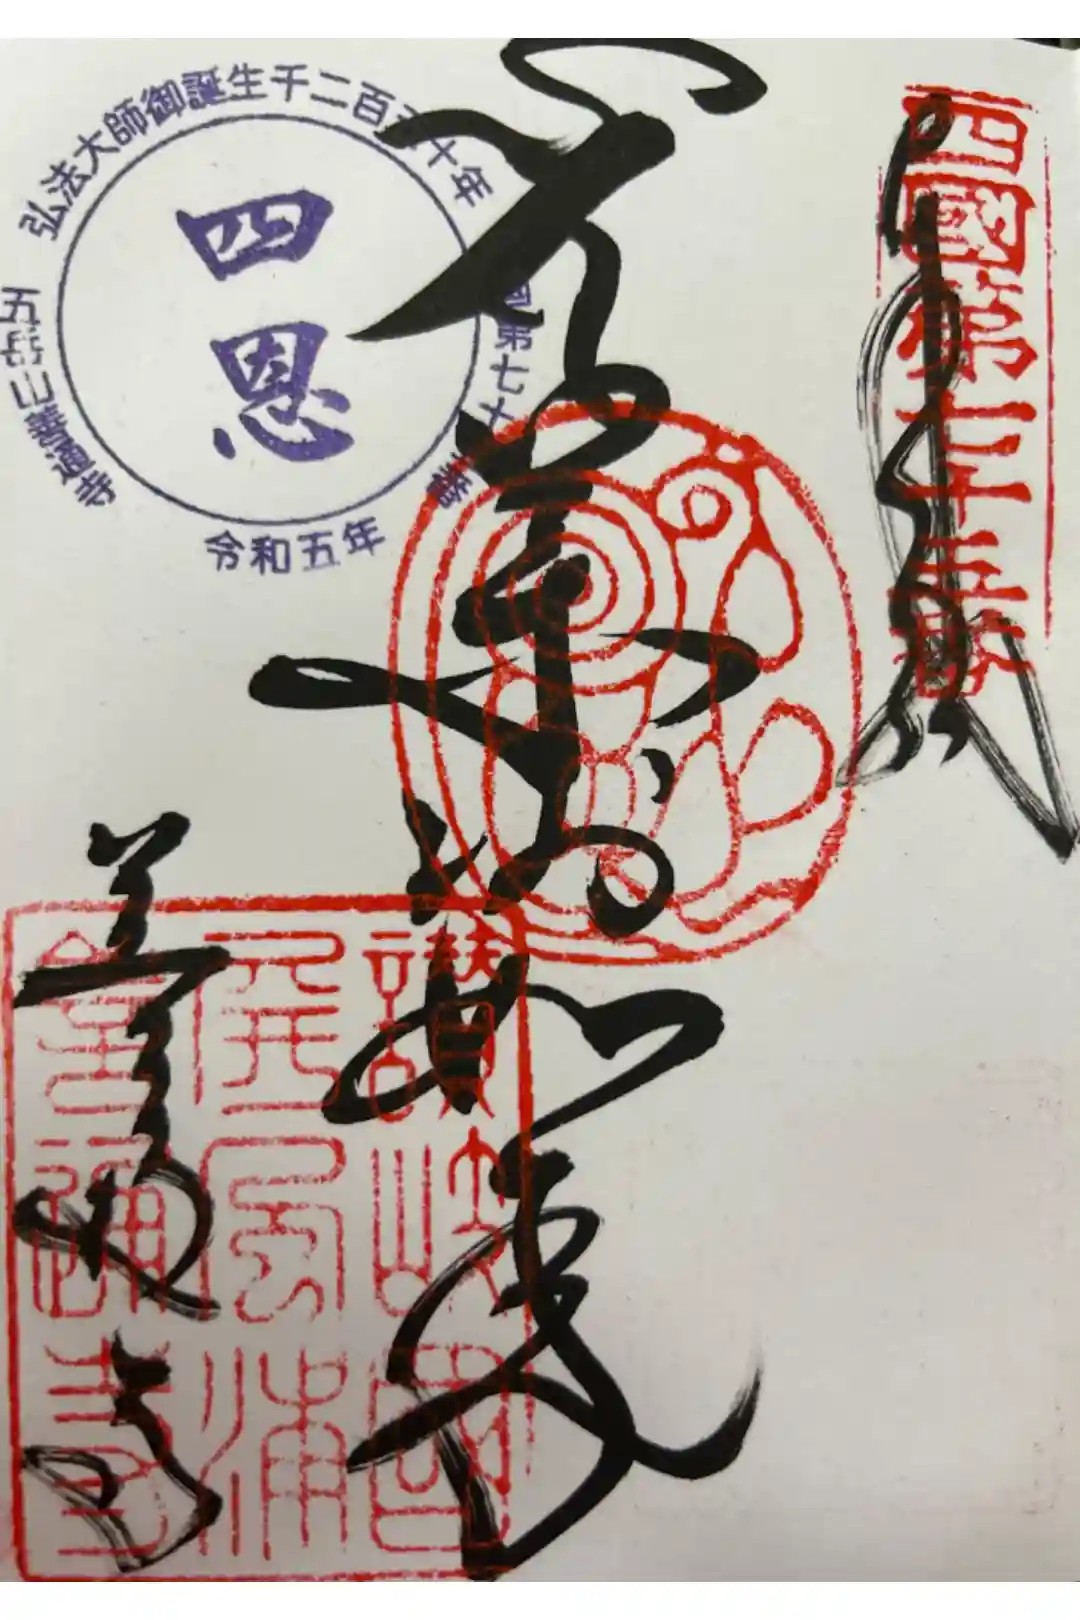 四國第七十五番
薬師如来
善通寺
弘法大師御誕生千二百五十年
四恩
第七十
五岳山善通寺
令和五年
讃岐國
屏風浦
善通寺